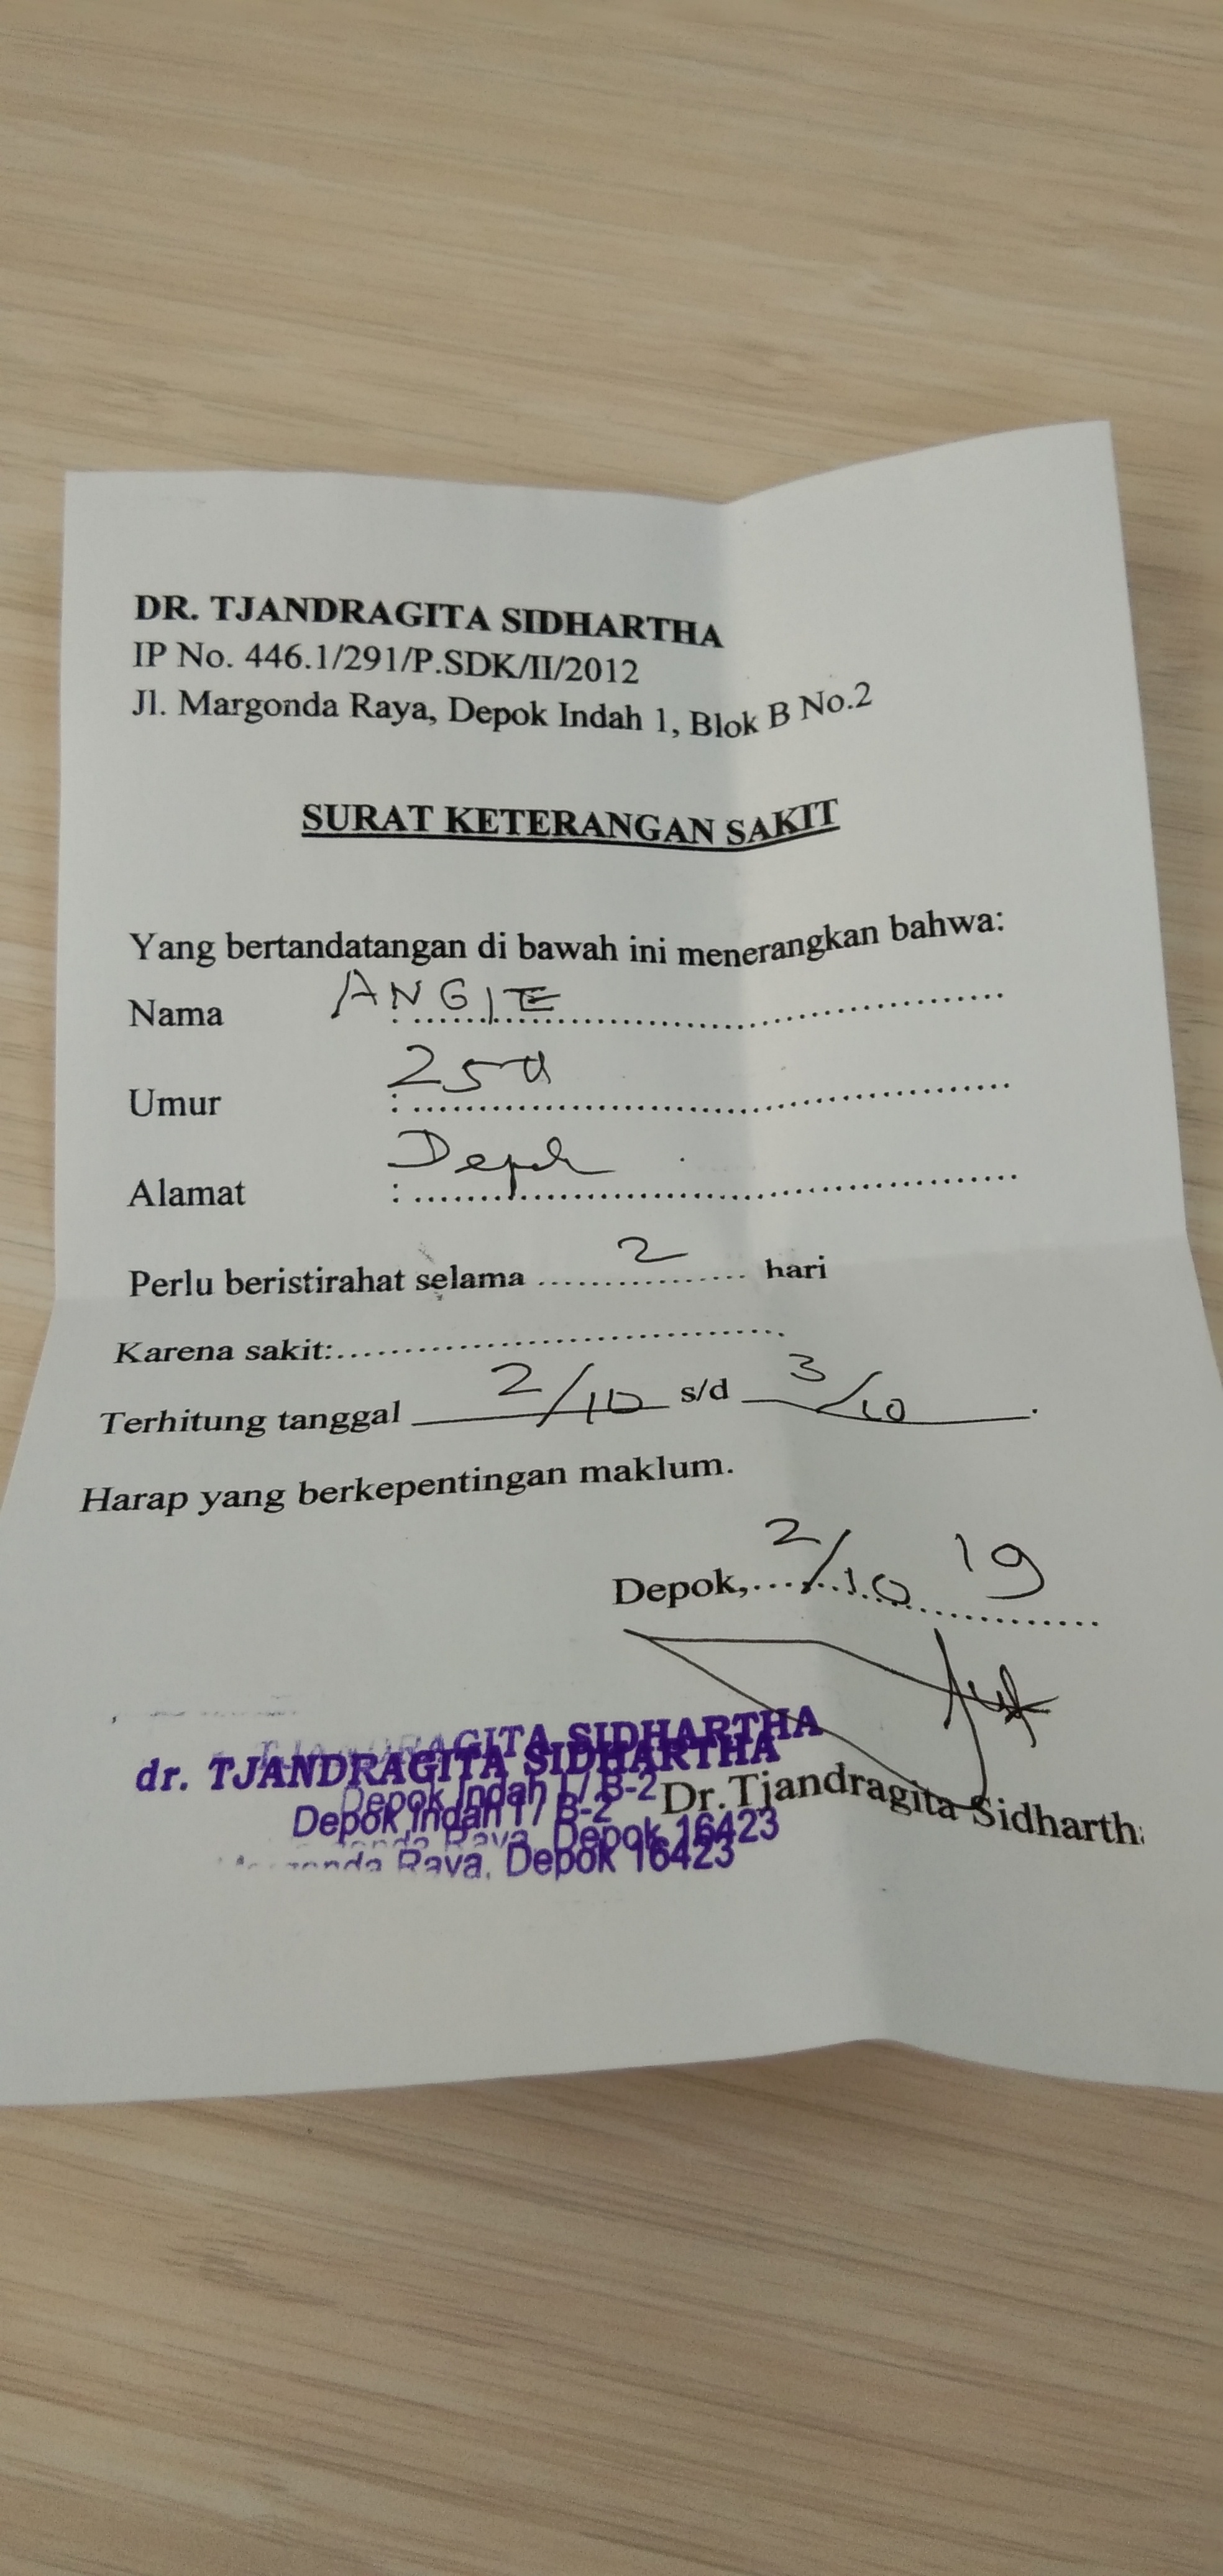 DR. TJANDRAGITA SIDHARTHA
IP No. 446.1/291/P.SDK/II/2012
Jl. Margonda Raya, Depok Indah 1, Blok B No.2
SURAT KETERANGAN SAKIT
Yang bertandatangan di bawah ini menerangkan bahwa:
Nama : ANGIE
Umur : 25
Alamat : Depok
Perlu beristirahat selama 2 hari
Karena sakit:
Terhitung tanggal 2/10 s/d 3/10.
Harap yang berkepentingan maklum.
Depok, 2/10 19
TJANDRAGITA SIDHARTHA
dr. TJANDRAGITA SIDHARTHA
Depok Indah I / B-2
Depok Indah I / B-2
Dr.Tjandragita Sidharth
Raya, Depok 16423
Raya, Depok 16423